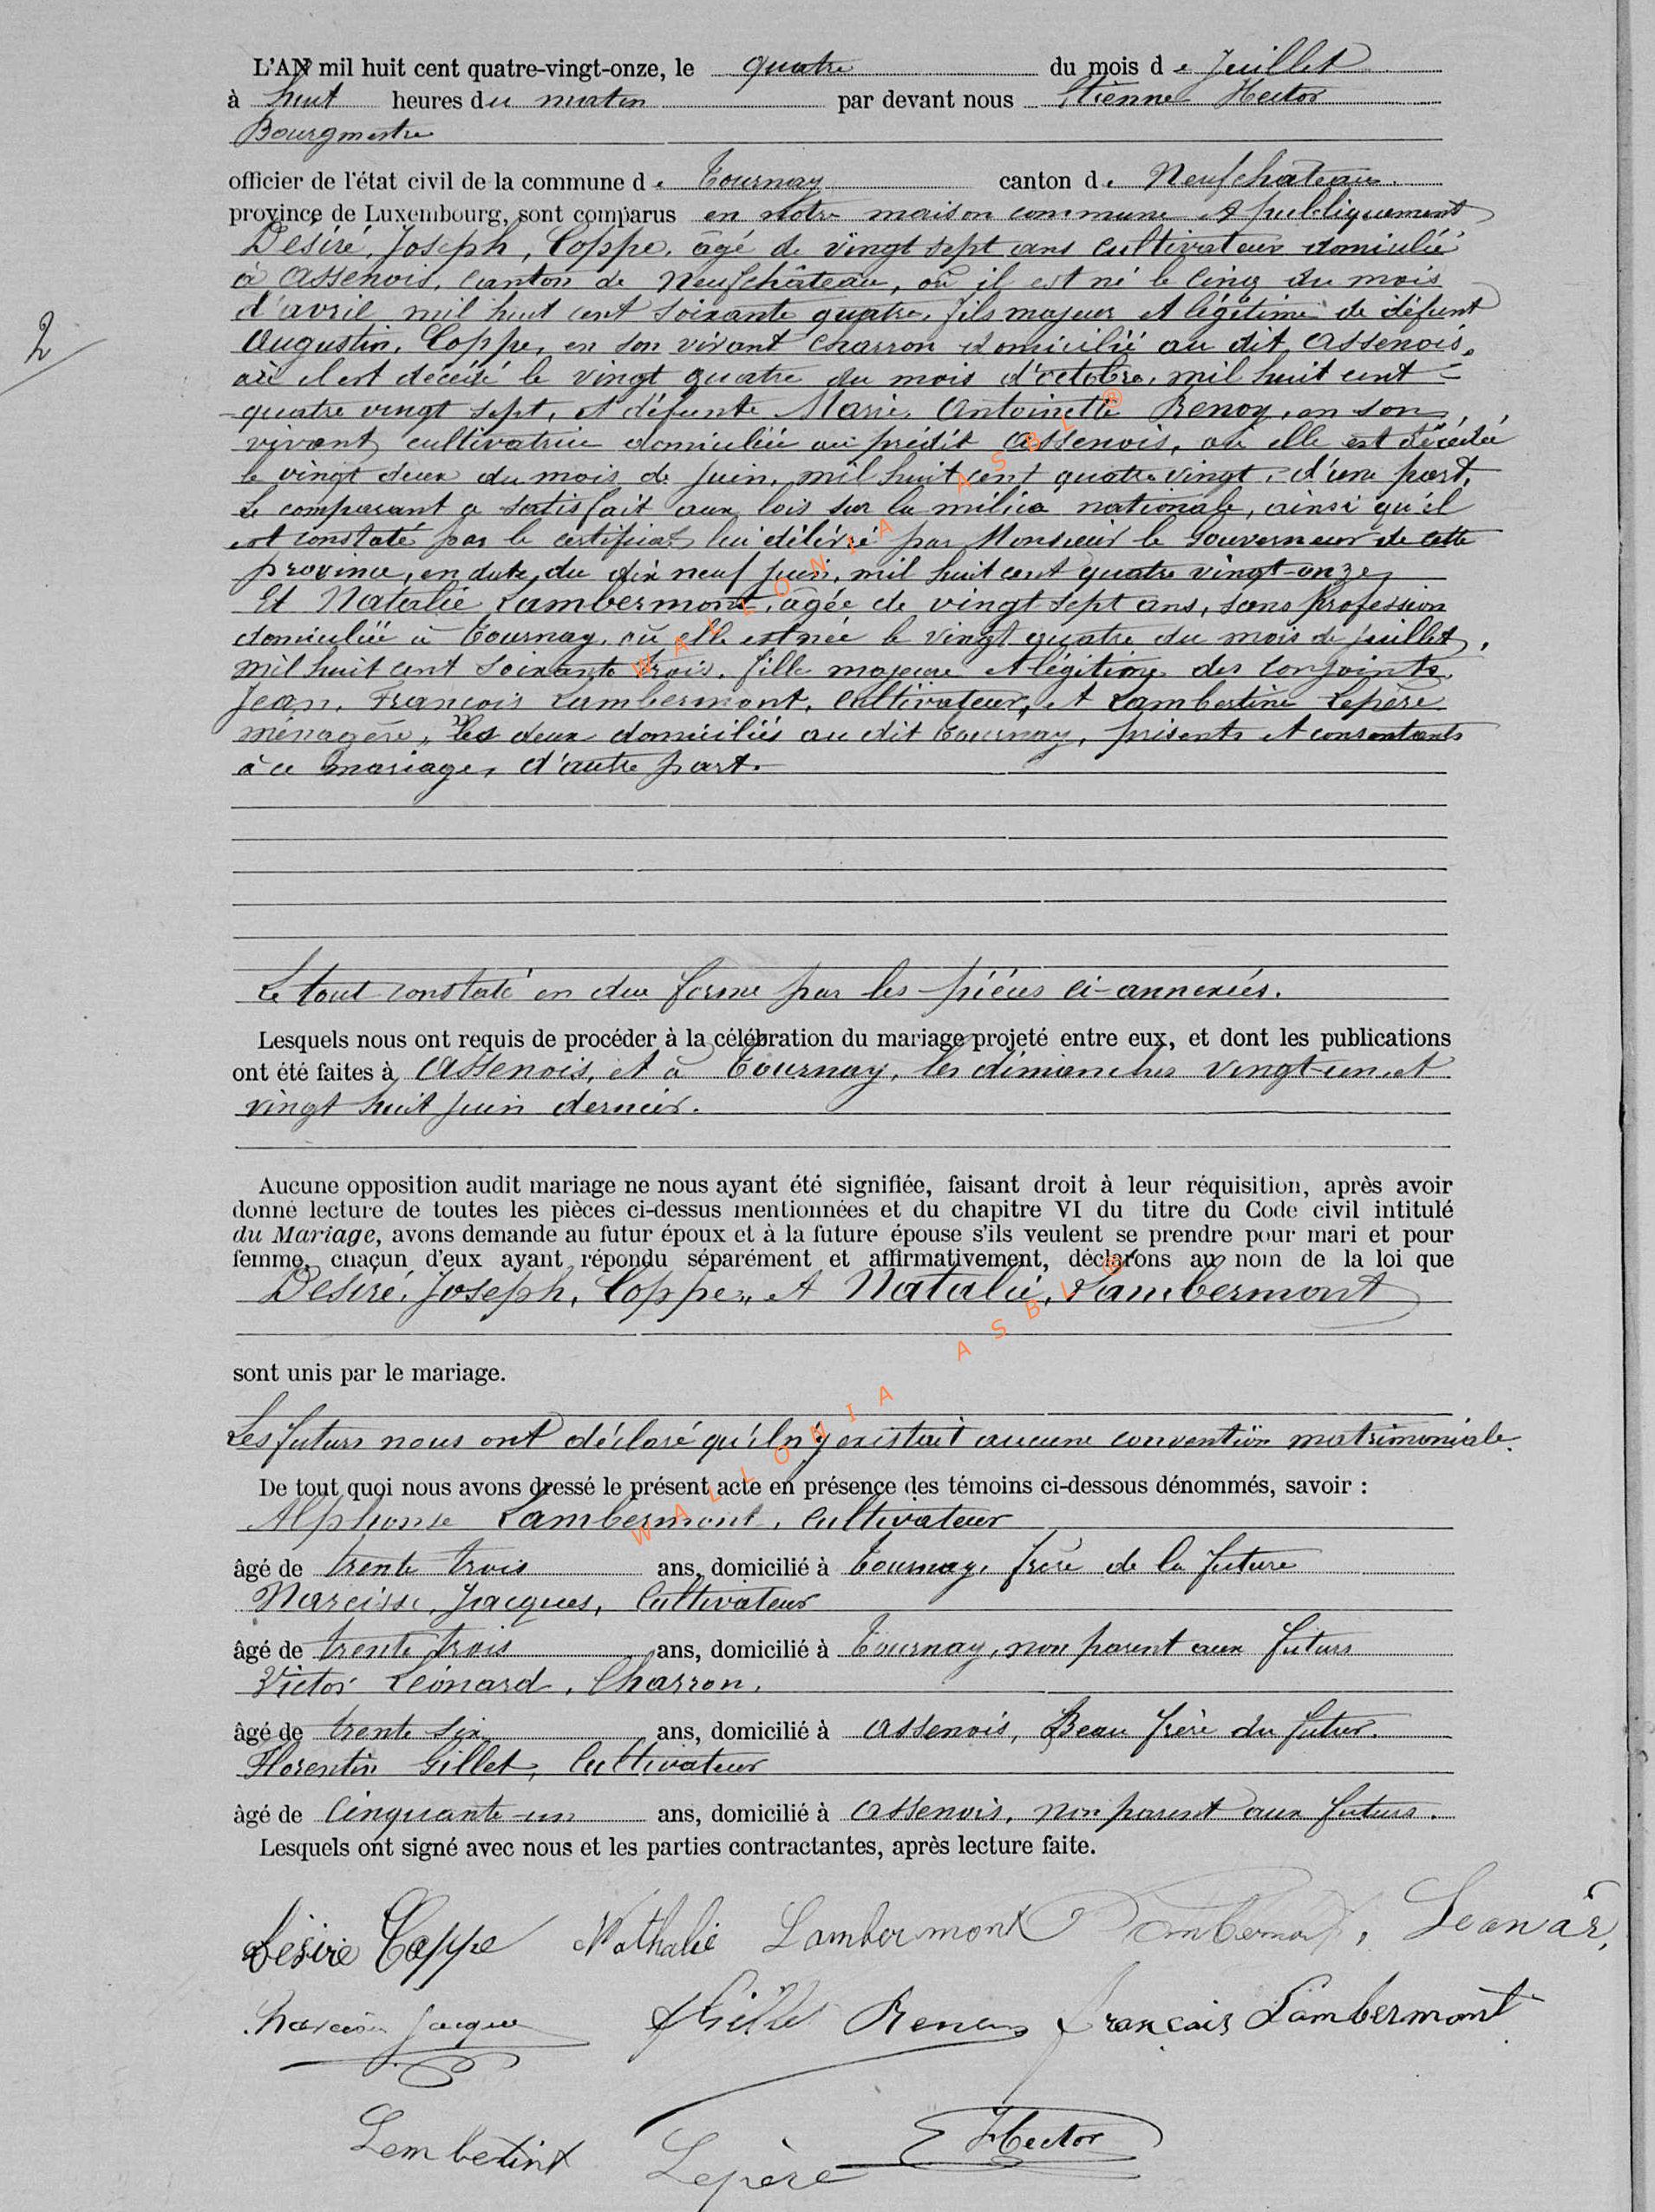 L'AN mil huit cent quatre-vingt-onze, le quatre du mois de Juillet
à huit heures du matin par devant nous Etienne Hector
Bourgmestre
officier de l'état civil de la commune de Tournay canton de Neufchateau.
province de Luxembourg, sont comparus en notre maison commune et publiquement
Désiré, Joseph, Coppe, âgé de vingt sept ans cultivateur domicilié
à Assenois, canton de Neufchâteau, où il est né le cinq du mois
d'avril mil huit cent soixante quatre, fils majeur et légitime de défunt
Augustin, Coppe, en son vivant charron domicilié au dit Assenois,
où il est décédé le vingt quatre du mois d'octobre, mil huit cent
quatre vingt sept, et défunte Marie, Antoinette Renoy, en son
vivant cultivatrice domiciliée au prédit Assenois, où elle est décédée
le vingt deux du mois de Juin, mil huit cent quatre vingt, d'une part.
Le comparant a satisfait aux lois sur la milice nationale, ainsi qu'il
est constaté par le certificat lui délivré par Monsieur le Gouverneur de cette
province, en date du dix neuf Juin, mil huit cent quatre vingt-onze,
Et Natalie Lambermont, âgée de vingt sept ans, sans profession
domiciliée à Tournay, où elle est née le vingt quatre du mois de Juillet,
mil huit cent soixante trois, fille majeure et légitime des conjoints
Jean, François Lambermont, cultivateur, et Lambertine Lepère
ménagère, les deux domiciliés au dit Tournay, présents et consentants
à ce mariage, d'autre part.
2
Le tout constaté en due forme par les pièces ci-annexées.
Lesquels nous ont requis de procéder à la célébration du mariage projeté entre eux, et dont les publications
ont été faites à Assenois, et à Tournay, les dimanches vingt-un et
vingt huit Juin dernier.
Aucune opposition audit mariage ne nous ayant été signifiée, faisant droit à leur réquisition, après avoir
donné lecture de toutes les pièces ci-dessus mentionnées et du chapitre VI du titre du Code civil intitulé
du Mariage, avons demande au futur époux et à la future épouse s'ils veulent se prendre pour mari et pour
femme, chaçun d'eux ayant répondu séparément et affirmativement, déclarons au nom de la loi que
Désiré, Joseph, Coppe, et Natalie, Lambermont
sont unis par le mariage.
Les futurs nous ont déclaré qu'il n'y existait aucune convention matrimoniale.
De tout quoi nous avons dressé le présent acte en présence des témoins ci-dessous dénommés, savoir :
Alphonse Lambermont, cultivateur
âgé de trente trois ans, domicilié à Tournay, frère de la future
Narcisse, Jacques, Cultivateur
âgé de trente trois ans, domicilié à Tournay, non parent aux futurs
Victor Léonard, Charron,
âgé de trente six ans, domicilié à Assenois, Beau frère du futur.
Florentin Gillet, Cultivateur
âgé de cinquante-un ans, domicilié à Assenois, non parent aux futurs.
Lesquels ont signé avec nous et les parties contractantes, après lecture faite.
Désiré Coppe Nathalie Lambermont Lambermont, Leonar,
Narcisse Jacques François Lambermont
Lembetint Lepère Hector
WALLONIA ASBL ®
WALLONIA ASBL ®